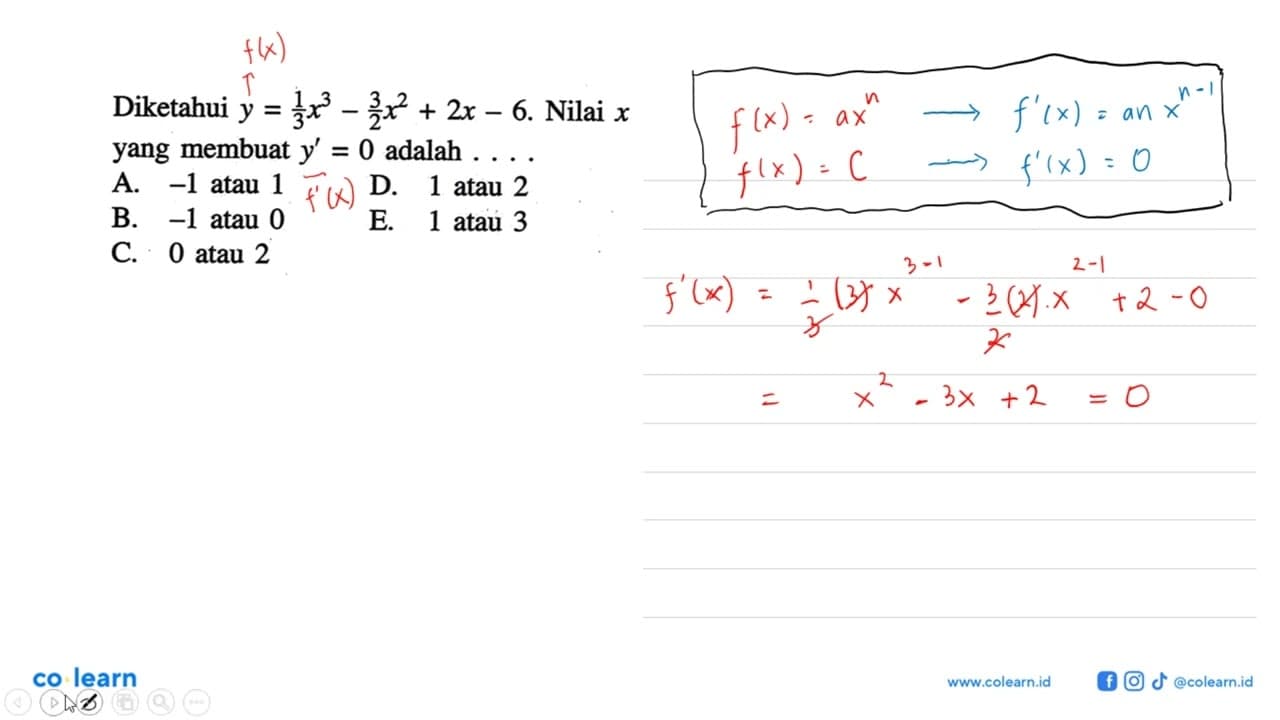 f(x)
↑
Diketahui y = 1/3 x³ – 3/2 x² + 2x – 6. Nilai x
yang membuat y' = 0 adalah . . . .
f'(x)
A. –1 atau 1 D. 1 atau 2
B. –1 atau 0 E. 1 atau 3
C. 0 atau 2
f(x) = axⁿ → f'(x) = an xⁿ⁻¹
f(x) = C → f'(x) = 0
f'(x) = 1/3 (3) x³⁻¹ - 3/2 (2).x²⁻¹ + 2 - 0
= x² - 3x + 2 = 0
co learn
www.colearn.id @colearn.id